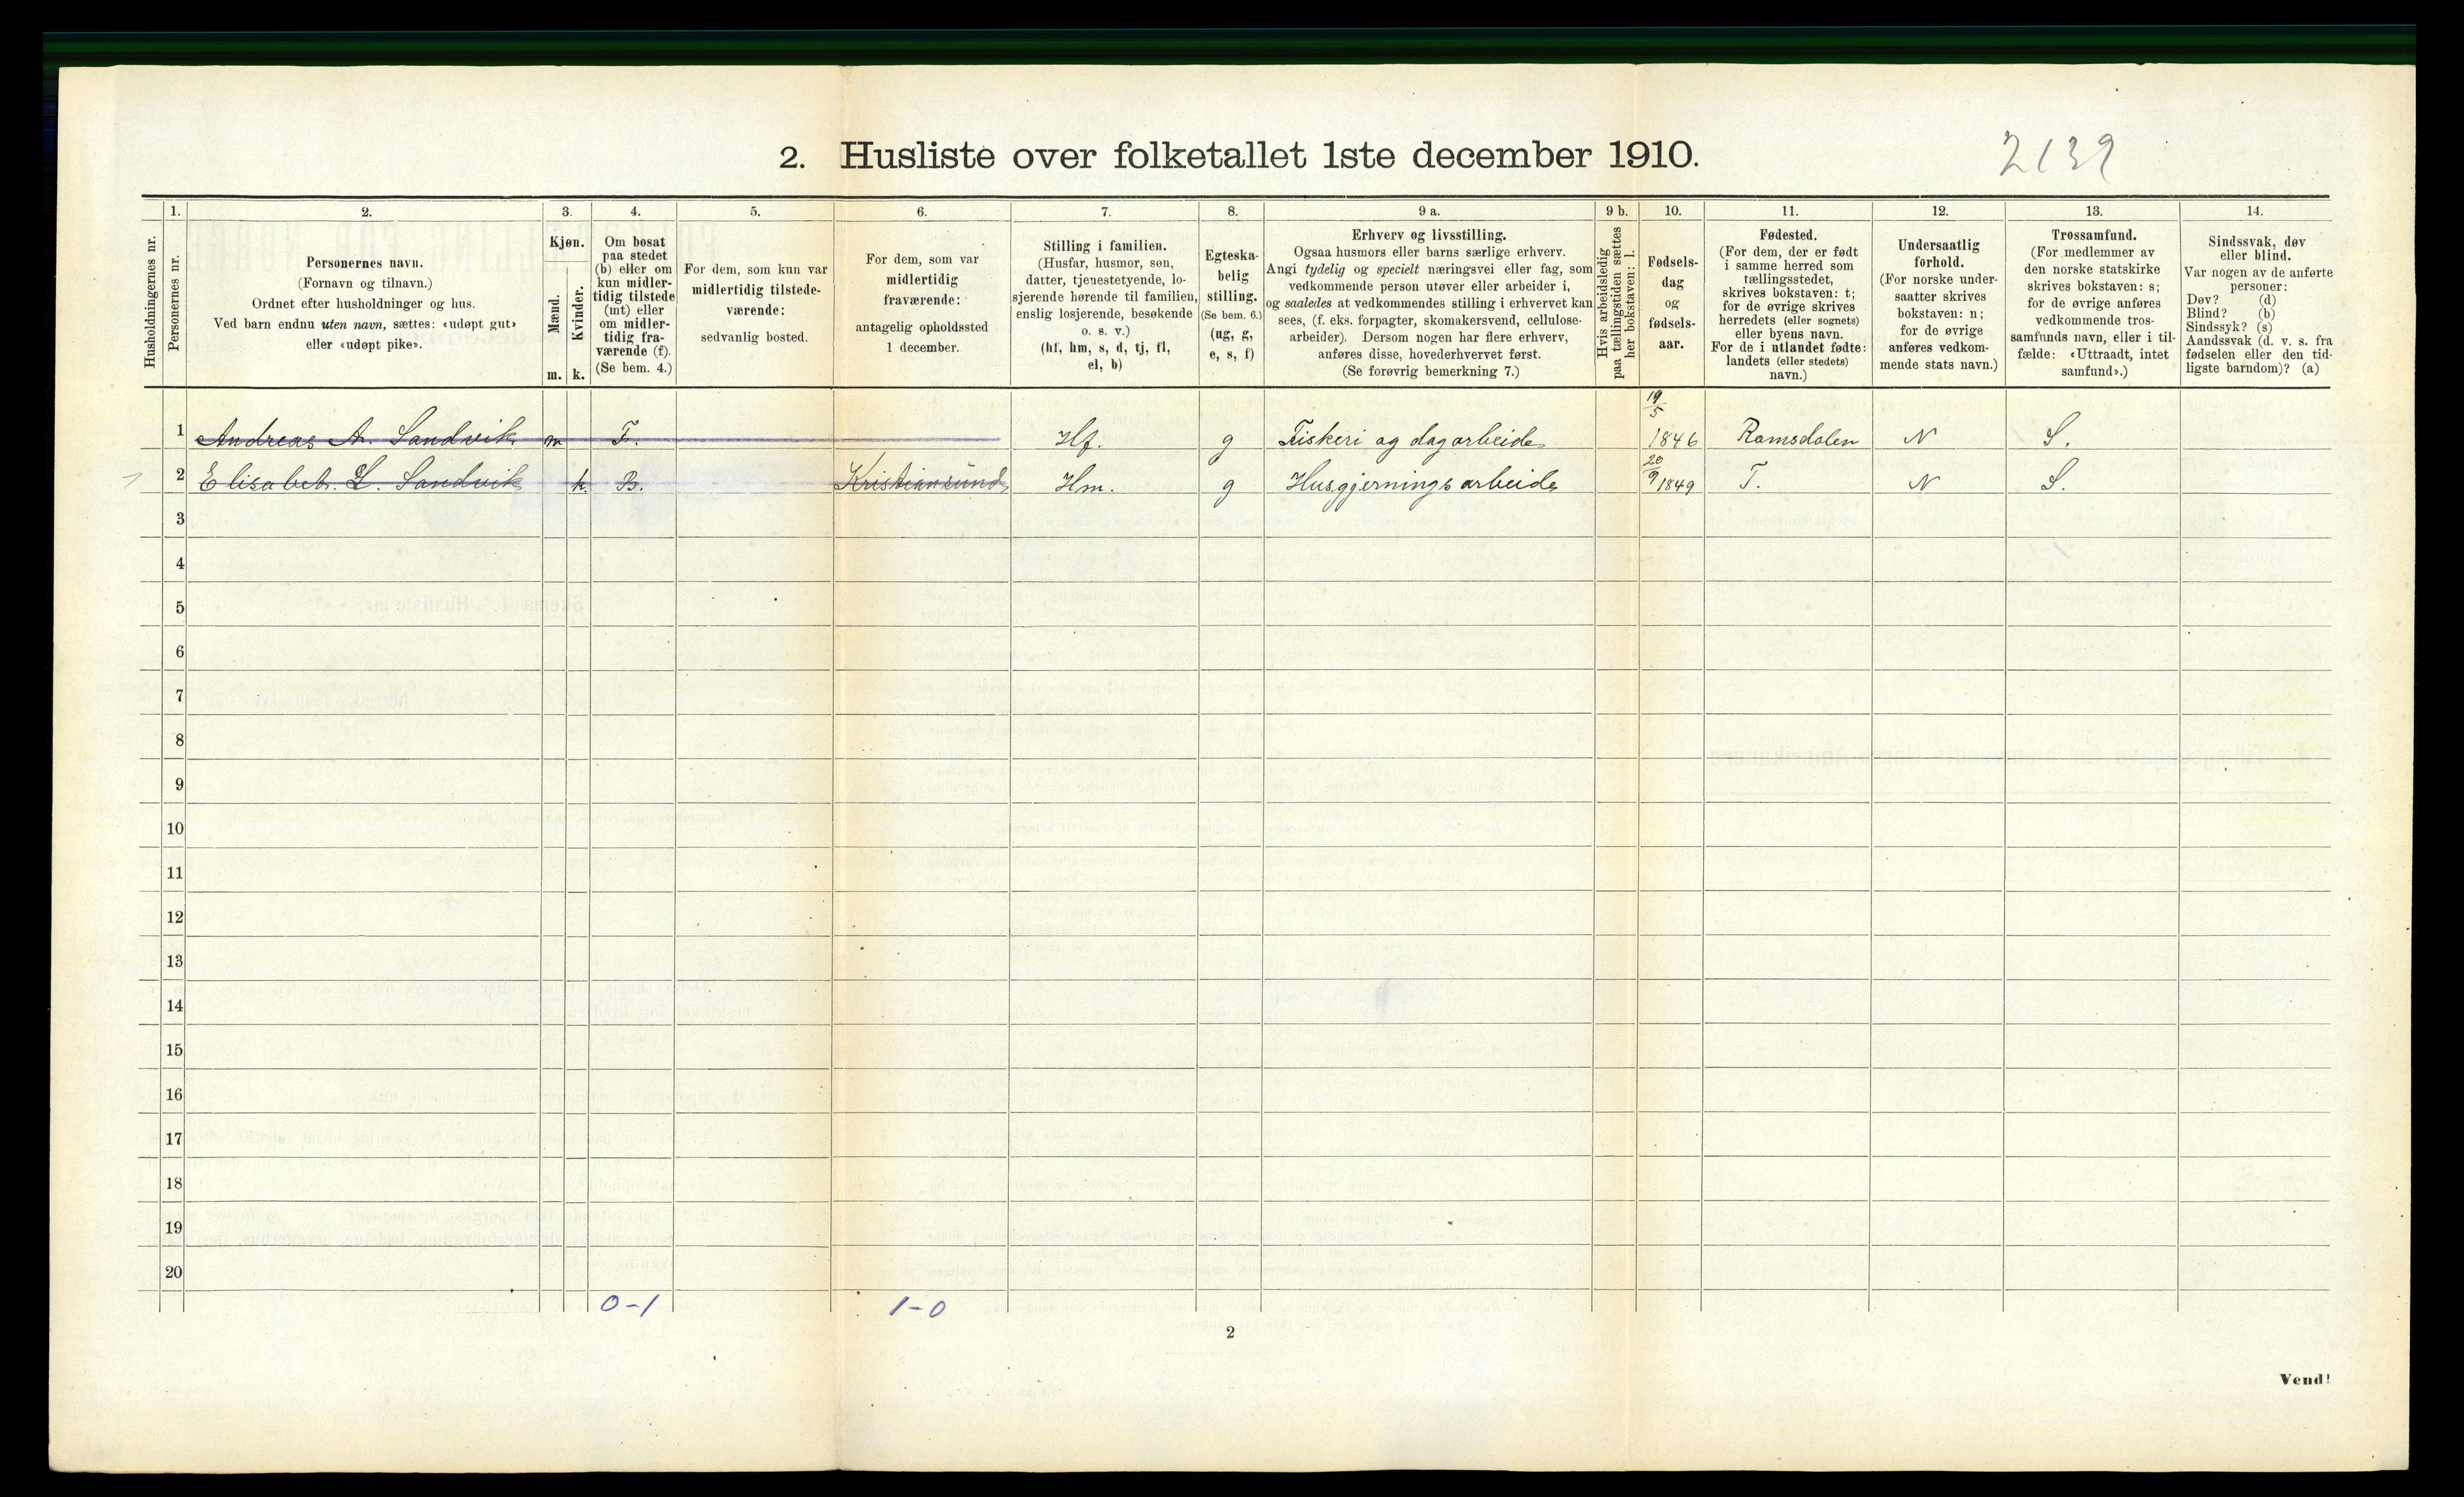 2139
2. Husliste over folketallet 1ste december 1910.
Husholdningernes nr.
1. Personernes nr.
2. Personernes navn. (Fornavn og tilnavn.) Ordnet efter husholdninger og hus. Ved barn endnu uten navn, sættes: «udøpt gut» eller «udøpt pike».
3. Kjøn. Mænd. m. Kvinder. k.
4. Om bosat paa stedet (b) eller om kun midlertidig tilstede (mt) eller om midlertidig fraværende (f). (Se bem. 4.)
5. For dem, som kun var midlertidig tilstedeværende: sedvanlig bosted.
6. For dem, som var midlertidig fraværende: antagelig opholdssted 1 december.
7. Stilling i familien. (Husfar, husmor, søn, datter, tjenestetyende, losjerende hørende til familien, enslig losjerende, besøkende o. s. v.) (hf, hm, s, d, tj, fl, el, b)
8. Egteskabelig stilling. (Se bem. 6.) (ug, g, e, s, f)
9 a. Erhverv og livsstilling. Ogsaa husmors eller barns særlige erhverv. Angi tydelig og specielt næringsvei eller fag, som vedkommende person utøver eller arbeider i, og saaledes at vedkommendes stilling i erhvervet kan sees, (f. eks. forpagter, skomakersvend, cellulosearbeider). Dersom nogen har flere erhverv, anføres disse, hovederhvervet først. (Se forøvrig bemerkning 7.)
9 b. Hvis arbeidsledig paa tællingstiden sættes her bokstaven: l.
10. Fødselsdag og fødselsaar.
11. Fødested. (For dem, der er født i samme herred som tællingsstedet, skrives bokstaven: t; for de øvrige skrives herredets (eller sognets) eller byens navn. For de i utlandet fødte: landets (eller stedets) navn.)
12. Undersaatlig forhold. (For norske undersaatter skrives bokstaven: n; for de øvrige anføres vedkommende stats navn.)
13. Trossamfund. (For medlemmer av den norske statskirke skrives bokstaven: s; for de øvrige anføres vedkommende trossamfunds navn, eller i tilfælde: «Uttraadt, intet samfund».)
14. Sindssvak, døv eller blind. Var nogen av de anførte personer: Døv? (d) Blind? (b) Sindssyk? (s) Aandssvak (d. v. s. fra fødselen eller den tidligste barndom)? (a)
1 Andreas A. Sandvik m F. Hf. g Fiskeri og dagarbeide 19/5 1846 Romsdalen N S.
2 Elisabet. L. Sandvik k. B. Kristiansund Hm. g Husgjerningsarbeide 20/9 1849 T. N S.
3
4
5
6
7
8
9
10
11
12
13
14
15
16
17
18
19
20
0-1 1-0
2
Vend!